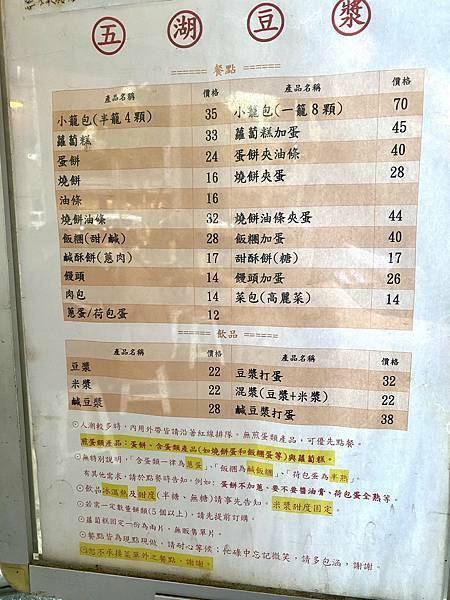 五湖豆漿
====== 餐點 ======
產品名稱 價格 產品名稱 價格
小籠包(半籠4顆) 35 小籠包(一籠8顆) 70
蘿蔔糕 33 蘿蔔糕加蛋 45
蛋餅 24 蛋餅夾油條 40
燒餅 16 燒餅夾蛋 28
油條 16
燒餅油條 32 燒餅油條夾蛋 44
飯糰(甜/鹹) 28 飯糰加蛋 40
鹹酥餅(蔥肉) 17 甜酥餅(糖) 17
饅頭 14 饅頭加蛋 26
肉包 14 菜包(高麗菜) 14
蔥蛋/荷包蛋 12
====== 飲品 ======
產品名稱 價格 產品名稱 價格
豆漿 22 豆漿打蛋 32
米漿 22 混漿(豆漿+米漿) 22
鹹豆漿 28 鹹豆漿打蛋 38
⊙人潮較多時,內用外帶皆請沿著紅線排隊。無煎蛋類產品,可優先點餐。
煎蛋類產品:蛋餅、含蛋類產品(如燒餅蛋和飯糰蛋等)與蘿蔔糕。
⊙無特別說明,「含蛋類一律為蔥蛋」、「飯糰為鹹飯糰」、「荷包蛋為半熟」。
有其他需求,請於點餐時告知。例如:蛋餅不加蔥、要不要醬油膏、荷包蛋全熟等。
⊙飲品冰溫熱及甜度(半糖、無糖)請事先告知。米漿甜度固定。
⊙若需一定數量餅類(5個以上),請先提前訂購。
⊙蘿蔔糕固定一份為兩片,無販售單片。
⊙餐點皆為現點現做,請耐心等候;忙碌中忘記微笑,請多包涵,謝謝。
⊙恕不承接菜單外之餐點,謝謝。